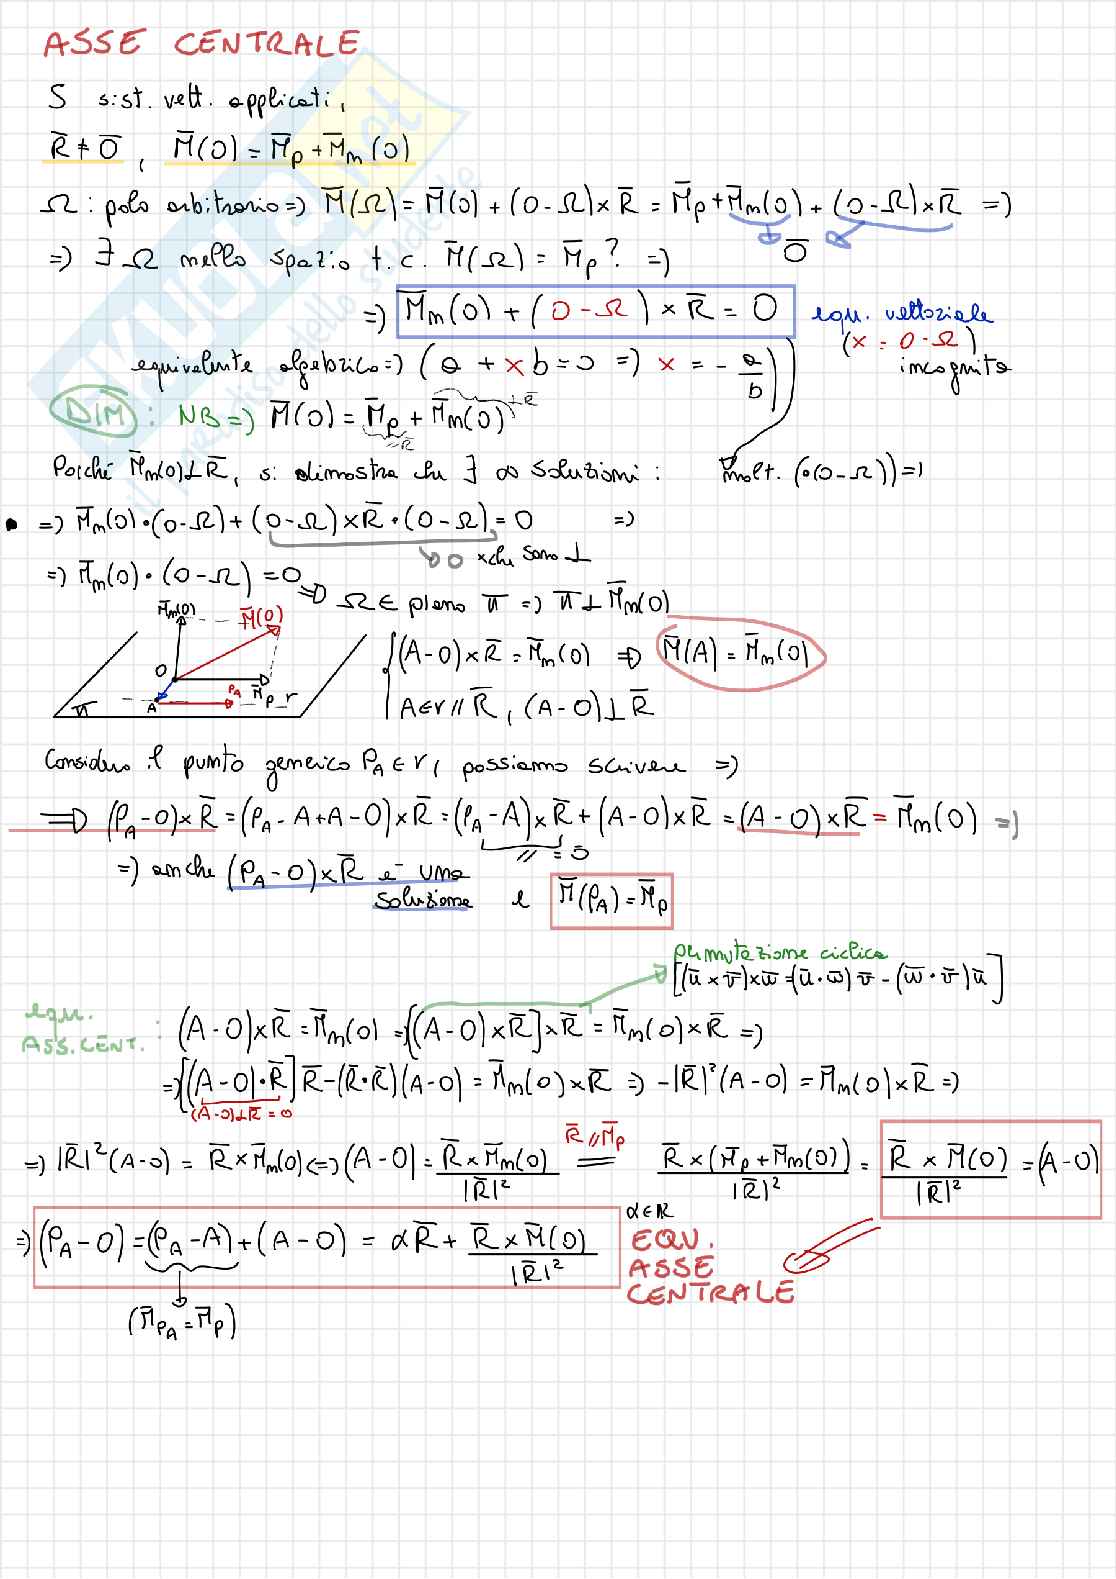 ASSE CENTRALE
S sist. vett. applicati,
R̄ ≠ Ō, M̄(O) = M̄p + M̄m(O)
Ω: polo arbitrario => M̄(Ω) = M̄(O) + (O-Ω)×R̄ = M̄p + M̄m(O) + (O-Ω)×R̄ =>
=> ∃ Ω nello spazio t.c. M̄(Ω) = M̄p? => Ō
=> M̄m(O) + (O-Ω) × R̄ = O equ. vettoriale
(x = O-Ω)
equivalente algebrico => (a + xb = 0 => x = - a/b) incognita
DIM: NB => M̄(O) = M̄p + M̄m(O)
//R̄ ⊥R̄
Poiché M̄m(O)⊥R̄, si dimostra che ∃ ∞ soluzioni: molt. (•(O-Ω)) =>
• => M̄m(O)•(O-Ω) + (O-Ω)×R̄•(O-Ω) = 0 =>
0 xche sono ⊥
=> M̄m(O)•(O-Ω) = 0 => Ω ∈ piano π => π ⊥ M̄m(O)
M̄m(O) M̄(O)
O PA M̄p r
A π
(A-O)×R̄ = M̄m(O) => M̄(A) = M̄m(O)
A∈r // R̄, (A-O)⊥R̄
Considero il punto generico PA ∈ r, possiamo scrivere =>
=> (PA-O)×R̄ = (PA-A+A-O)×R̄ = (PA-A)×R̄ + (A-O)×R̄ = (A-O)×R̄ = M̄m(O) =>
// = Ō
=> anche (PA-O)×R̄ è una
soluzione e M̄(PA) = M̄p
permutazione ciclica
[(ū×v̄)×w̄ = (ū•w̄)v̄ - (w̄•v̄)ū]
equ.
ASS. CENT. : (A-O)×R̄ = M̄m(O) => [(A-O)×R̄]×R̄ = M̄m(O)×R̄ =>
=> [(A-O)•R̄]R̄ - (R̄•R̄)(A-O) = M̄m(O)×R̄ => -|R̄|²(A-O) = M̄m(O)×R̄ =>
(A-O)⊥R̄ = 0
=> |R̄|²(A-O) = R̄×M̄m(O) <=> (A-O) = R̄×M̄m(O)/|R̄|² = (R̄ // M̄p) R̄×(M̄p+M̄m(O))/|R̄|² = R̄×M̄(O)/|R̄|² = (A-O)
=> (PA-O) = (PA-A) + (A-O) = αR̄ + R̄×M̄(O)/|R̄|² α∈ℝ
EQU.
ASSE
CENTRALE
(M̄PA = M̄p)